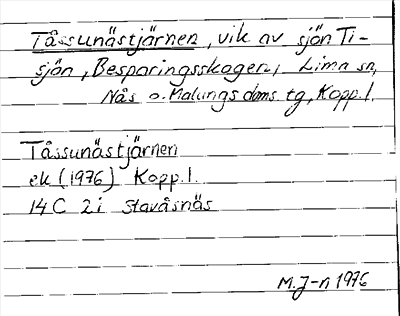 Tåssunästjärnen, vik av sjön Ti-
sjön, Besparingsskogen, Lima sn,
Nås o. Malungs doms tg, Kopp.l.
Tåssunästjärnen
ek (1976) Kopp.l.
14 C 2 i Stavåsnäs
M.J-n 1976